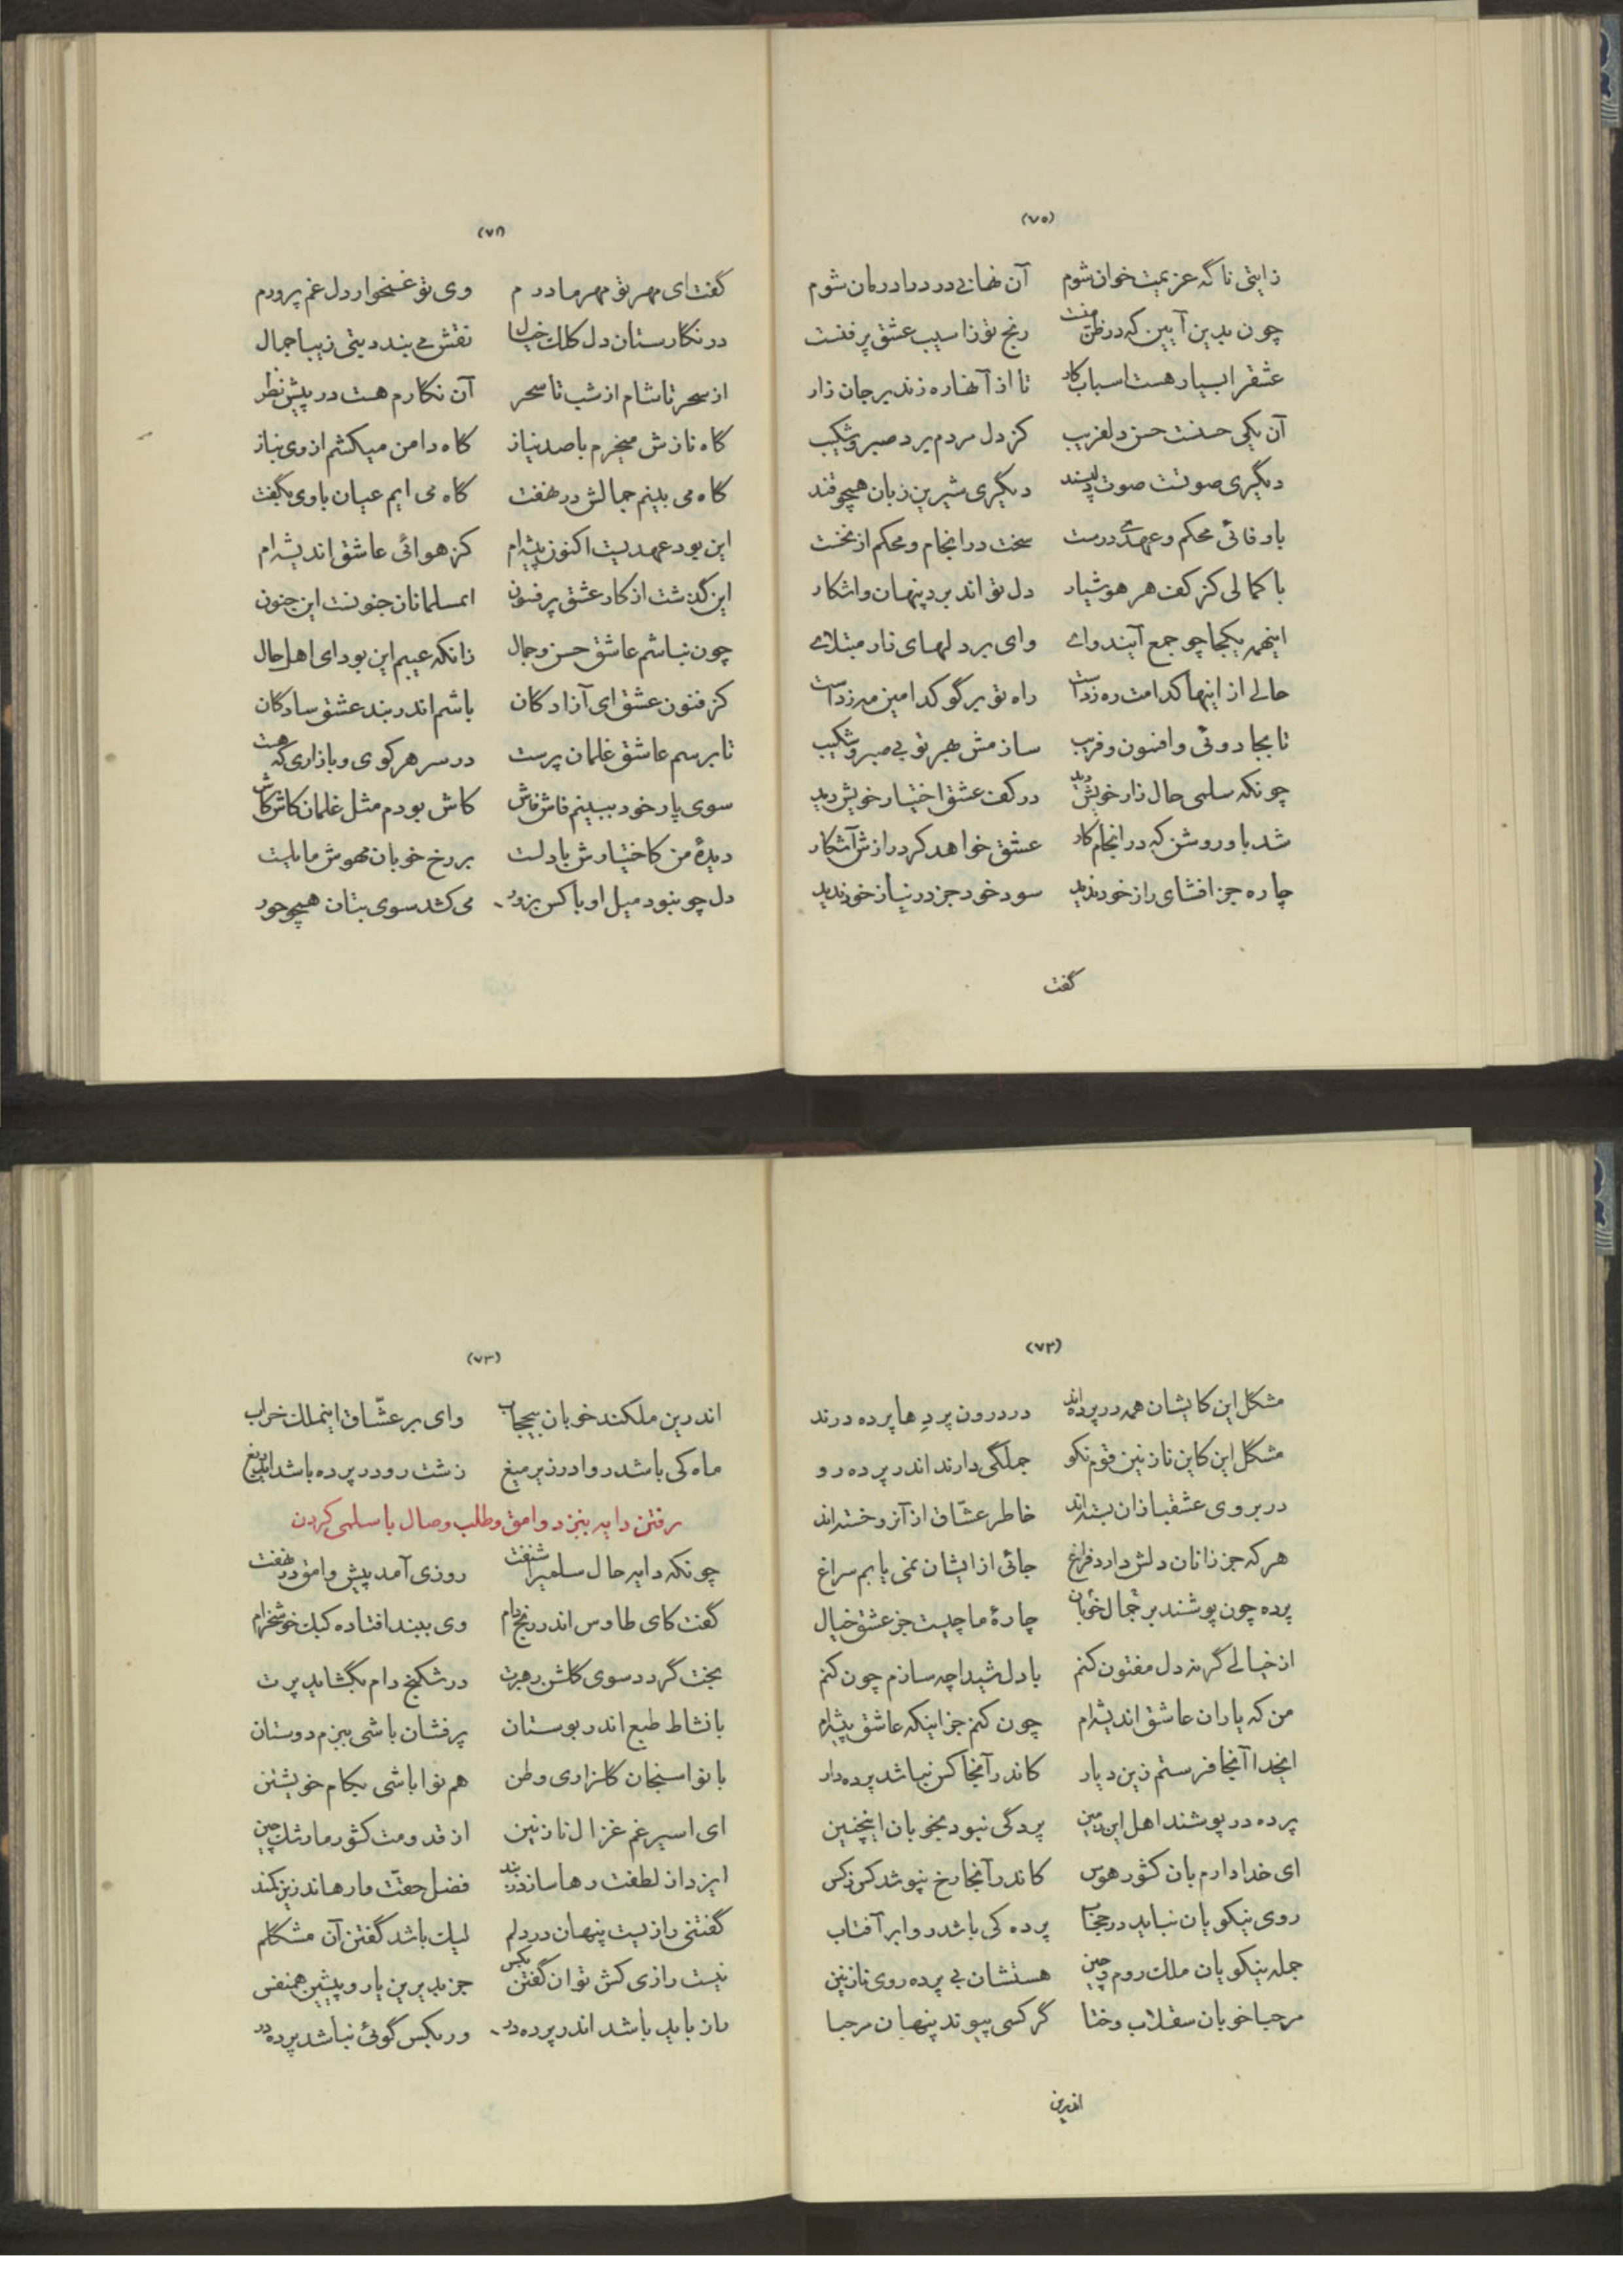 (۷۰)
زایتی ناگه عزیمت خوان شوم آن نهانی درد را درمان شوم
چون بدین آیین که در ظن منت رنج تو ز آسیب عشق پر فنست
عشقرا بسیار هست اسباب کار تا از آنها ره زند بر جان زار
آن یکی حسنت حسن دلفریب کز دل مردم برد صبر و شکیب
دیگری صوتست صوت دلپسند دیگری شیرین زبان همچو قند
با وفائی محکم و عهدی درست سخت در انجام و محکم از نخست
با کمالی کز کف هر هوشیار دل تواند برد پنهان و اشکار
اینهمه یکجا چو جمع آیند وای وای بر دلهای زار مبتلای
حالی از اینها کدامت ره زداست راه تو برگو کدامین مه زداست
تا بجادوئی و افسون و فریب سازمش بهر تو بی صبر و شکیب
چونکه سلمی حال زار خویش دید در کف عشق اختیار خویش دید
شد باو روشن که در انجام کار عشق خواهد کرد رازش آشکار
چاره جز افشای راز خود ندید سود خود جز در نیاز خود ندید
گفت
(۷۱)
گفت ای مهر تو مهر مادرم وی تو غمخوار دل غم پرورم
در نگارستان دل کلک خیال نقش می بندد بتی زیبا جمال
از سحر تا شام از شب تا سحر آن نگارم هست در پیش نظر
گاه نازش میخرم با صد نیاز گاه دامن میکشم از وی بناز
گاه می بینم جمالش در نهفت گاه می ایم عیان با وی بگفت
این بود عهدیست اکنون پیشه ام کز هوائی عاشق اندیشه ام
این گذشت از کار عشق پر فسون ایمسلمانان جنونست این جنون
چون نباشم عاشق حسن و جمال زانکه عیبم این بود ای اهل حال
کز فنون عشق ای آزادگان باشم اندر بند عشق سادگان
تا برسم عاشق غلمان پرست در سر هر کوی و بازاری که هست
سوی یار خود ببینم فاش فاش کاش بودم مثل غلمان کاش کاش
دیدهٔ من کاختیارش با دلست بر رخ خوبان مهوش مایلست
دل چو نبود میل او با کس بزور می کشد سوی بتان همچو حور
(۷۲)
مشکل این کایشان همه در پرده اند در درون پردها پرده درند
مشکل این کاین نازنین قوم نکو جملگی دارند اندر پرده رو
در بروی عشقبازان بسته اند خاطر عشّاق از آن رو خسته اند
هر که جز زانان دلش دارد فراغ جائی از ایشان نمی یابم سراغ
پرده چون پوشند بر جمال خوبان چارهٔ ما چیست جز عشق خیال
از خیالی گر نه دل مفتون کنم با دل شیدا چه سازم چون کنم
من که یاران عاشق اندیشه ام چون کنم جز اینکه عاشق پیشه ام
ایخدا آنجا فرستم زین دیار کاندر آنجا کس نباشد پرده دار
پرده در پوشند اهل این زمین پردگی نبود بخوبان اینچنین
ای خدا دارم بان کشور هوس کاندر آنجا رخ نپوشد کس ز کس
روی نیکویان نباید در حجاب پرده کی باشد روا بر آفتاب
جمله نیکویان ملک روم و چین هستشان بی پرده روی نازنین
مرحبا خوبان سقلاب و ختا گر کسی پیوند پنهان مرحبا
اندرین
(۷۳)
اندرین ملکند خوبان بیحجاب وای بر عشّاق اینملک خراب
ماه کی باشد روا در زیر میغ زشت رو در پرده باشد ایدریغ
رفتن دایه بنزد وامق و طلب وصال با سلمی کردن
چونکه دایه حال سلمیرا شنفت روزی آمد پیش وامق در نهفت
گفت کای طاوس اندر رنج دام وی ببند افتاده کبک خوشخرام
بخت گردد سوی گلشن رهبرت در شکنج دام بگشاید پرت
با نشاط طبع اندر بوستان پرفشان باشی ببزم دوستان
با نوا سنجان گلزاری وطن هم نوا باشی بکام خویشتن
ای اسیر غم غزال نازنین از قدومت کشور ما رشک چین
ایزد از لطفت رها سازد ز بند فضل حقت وارهاند زین کمند
گفتنی رازیست پنهان در دلم لیک باشد گفتن آن مشکلم
نیست رازی کش توان گفتن بکس جز بدیرین یار و پیشین همنفس
راز باید باشد اندر پرده در ور بکس گوئی نباشد پرده در